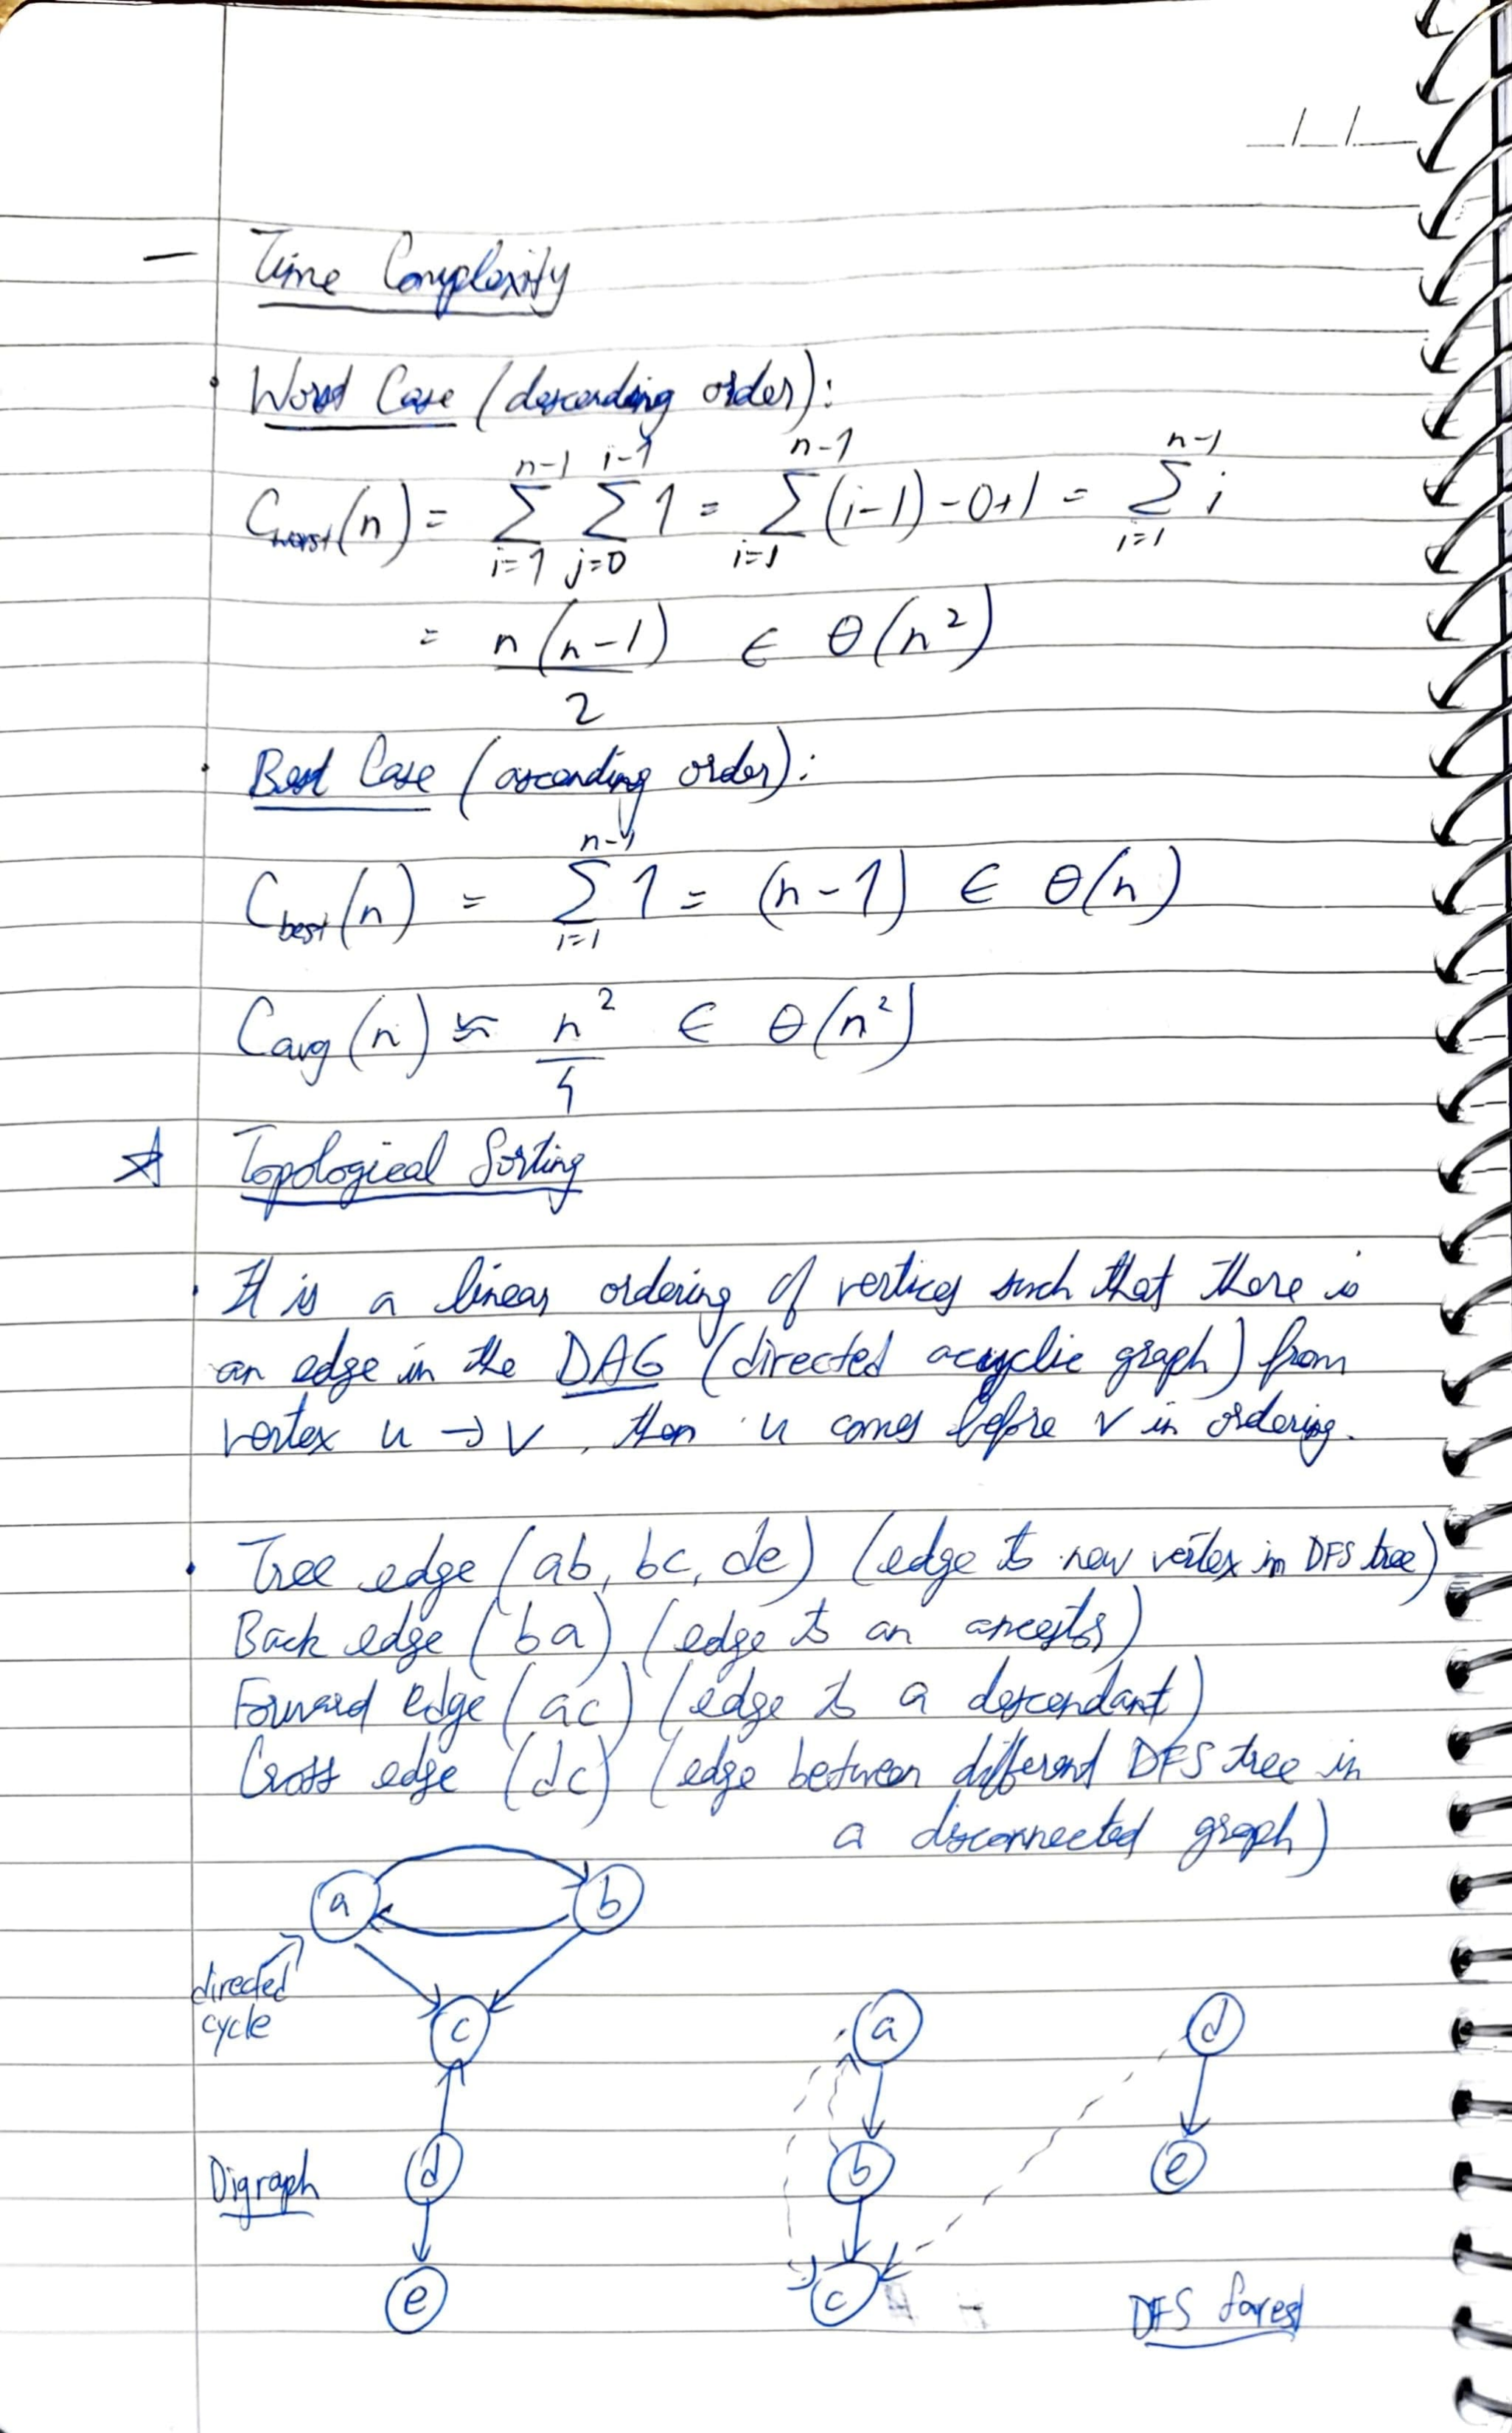 — Time Complexity
• Worst Case (descending order):
C_worst(n) = \sum_{i=1}^{n-1} \sum_{j=0}^{i-1} 1 = \sum_{i=1}^{n-1} (i-1)-0+1 = \sum_{i=1}^{n-1} i
= \frac{n(n-1)}{2} ∈ θ(n²)
• Best Case (ascending order):
C_best(n) = \sum_{i=1}^{n-1} 1 = (n-1) ∈ θ(n)
C_avg(n) ≈ \frac{n²}{4} ∈ θ(n²)
☆ Topological Sorting
• It is a linear ordering of vertices such that there is
an edge in the DAG (directed acyclic graph) from
vertex u → v, then u comes before v in ordering.
• Tree edge (ab, bc, de) (edge to new vertex in DFS tree)
Back edge (ba) (edge to an ancestor)
Forward edge (ac) (edge to a descendant)
Cross edge (dc) (edge between different DFS tree in
a disconnected graph)
a b
directed
cycle
c a d
Digraph d b e
e c DFS forest